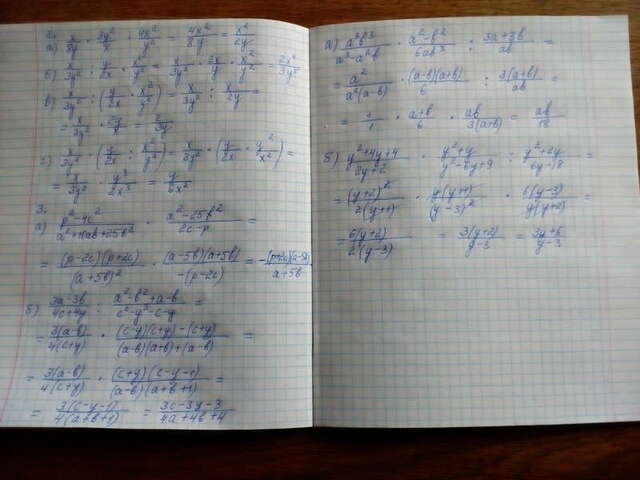 2.
а) x/8y · 3y²/x · 4x²/y² = 4x²/8y = x²/2y
б) x/3y² : y/2x · x²/y² = x/3y² · 2x/y · x²/y²
в) x/3y² : (y/2x · x²/y²) = x/3y² : x/2y =
= x/3y² · 2y/x = 2/3y
г) x/3y² · (y/2x : x²/y²) = x/3y² · (y/2x · y²/x²) =
= x/3y² · y³/2x³ = y/6x²
3.
а) (p²-4c²)/(a²+10ab+25b²) · (a²-25b²)/(2c-p) =
= (p-2c)(p+2c)/(a+5b)² · (a-5b)(a+5b)/-(p-2c) = -(p+2c)(a-5b)/(a+5b)
б) (3a-3b)/(4c+4y) : (a²-b²+a-b)/(c²-y²-c-y) =
= 3(a-b)/4(c+y) · ((c-y)(c+y)-(c+y))/((a-b)(a+b)+(a-b)) =
= 3(a-b)/4(c+y) · (c+y)(c-y-1)/(a-b)(a+b+1) =
= 3(c-y-1)/4(a+b+1) = (3c-3y-3)/(4a+4b+4)
(a²-b²)/6ab³ : (3a+3b)/ab =
= a²/a²(a-b) · (a-b)(a+b)/6 : 3(a+b)/ab =
= 1/1 · (a+b)/6 · ab/3(a+b) = ab/18
б) (y²+4y+4)/(2y+2) · (y²+y)/(y²-6y+9) : (y²+2y)/(6y-18) =
= (y+2)²/2(y+1) · y(y+1)/(y-3)² · 6(y-3)/y(y+2) =
= 6(y+2)/2(y-3) = 3(y+2)/y-3 = (3y+6)/(y-3)